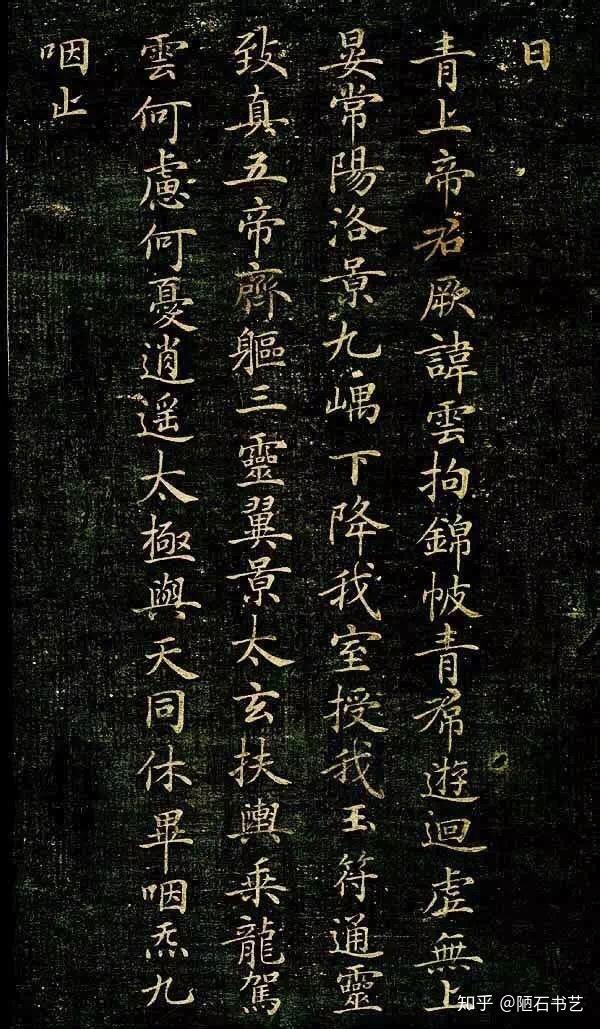 日
青上帝君厥諱雲拘錦帔青帬遊迴虛無上
晏常陽洛景九嵎下降我室授我玉符通靈
致真五帝齊軀三靈翼景太玄扶輿乘龍駕
雲何慮何憂逍遥太極與天同休畢咽炁九
咽止
知乎 @陋石书艺